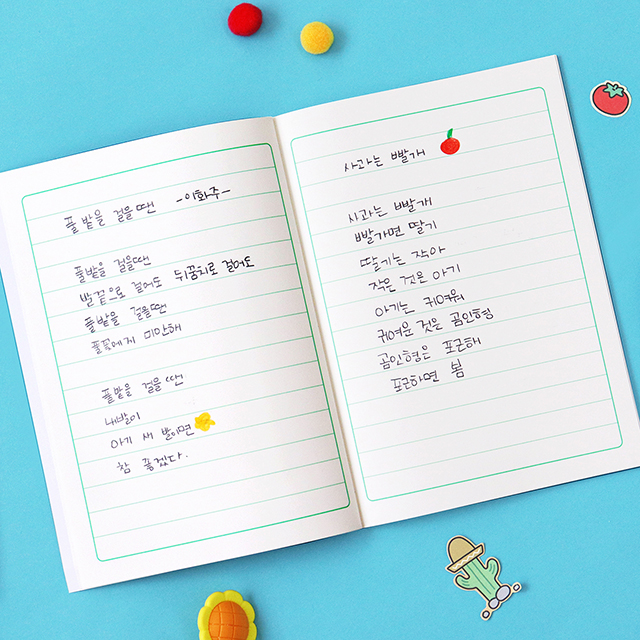 풀밭을 걸을땐 -이화주-
풀밭을 걸을땐
발끝으로 걸어도 뒤꿈치로 걸어도
풀밭을 걸을땐
풀꽃에게 미안해
풀밭을 걸을땐
내발이
아기 새 발이면
참 좋겠다.
사과는 빨개
사과는 빨개
빨가면 딸기
딸기는 작아
작은 것은 아기
아기는 귀여워
귀여운 것은 곰인형
곰인형은 포근해
포근하면 봄